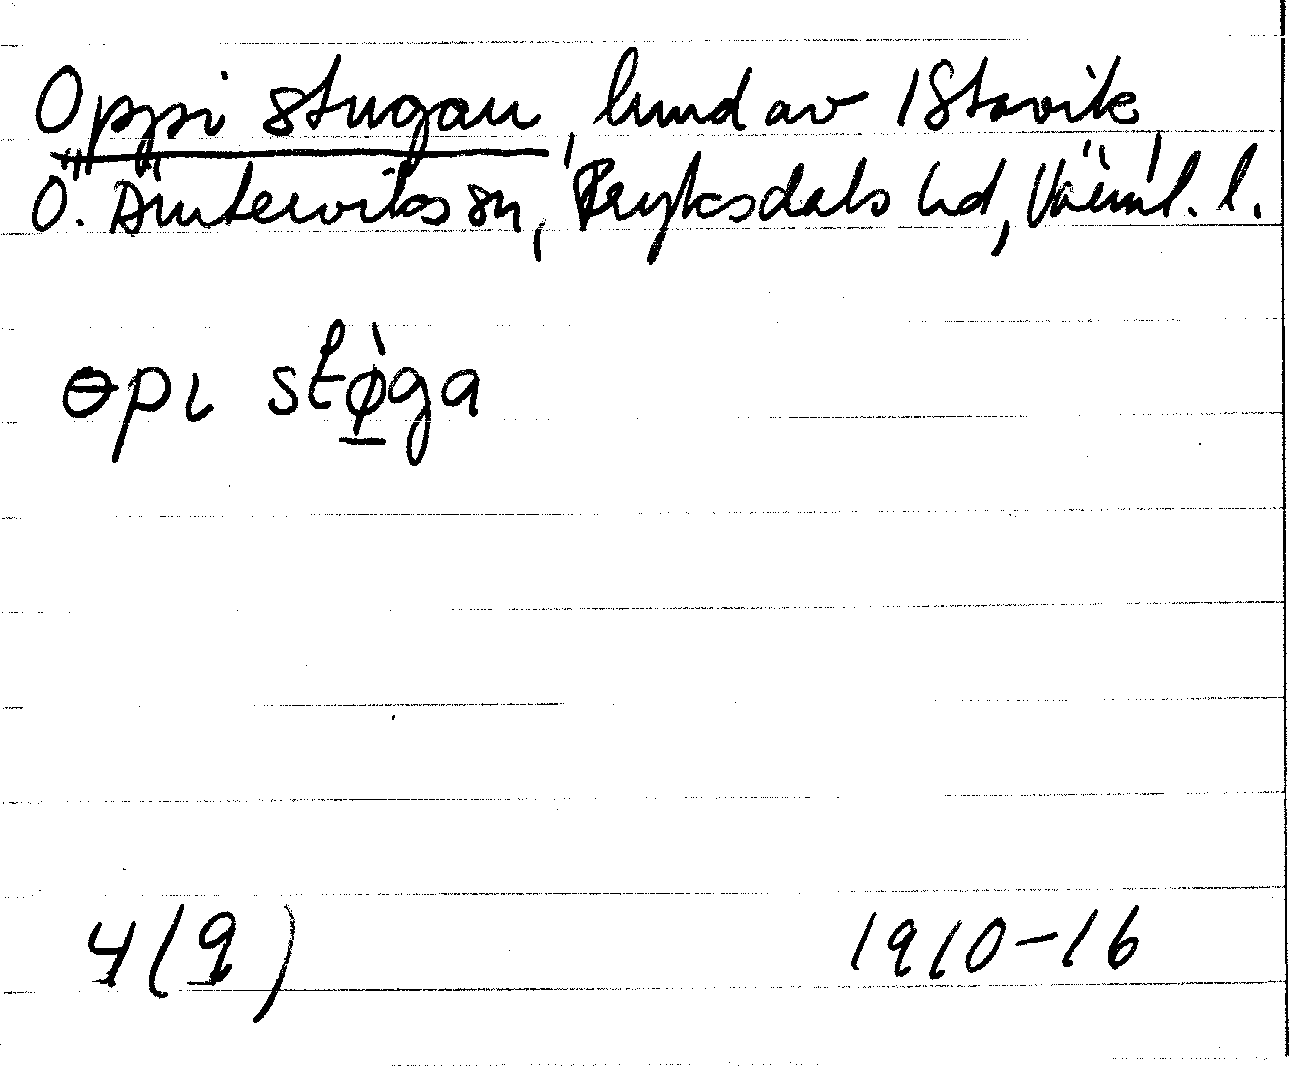 Oppi stugan, lund av 1 Stavik,
Ö. Ämterviks sn, Fryksdals hd, Värml. l.
ɵpɩ stø̀ga
4(9)
1910-16